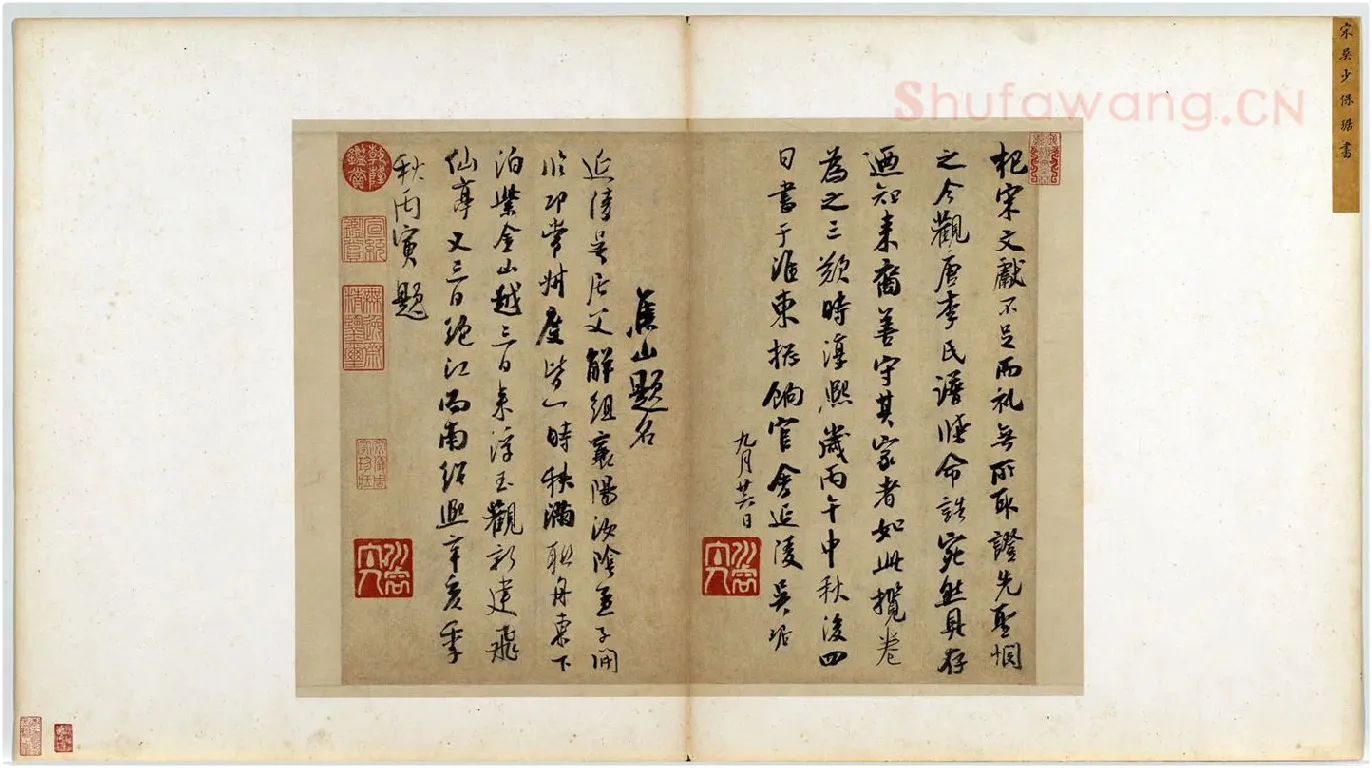 宋吳少保琚書
Shufawang.CN
杞宋文獻不足而礼無所取證先聖惜
之今觀唐李氏譜牒命誥宛然具存
廼知来裔善守其家者如此攬卷
為之三歎時淳熙歲丙午中秋後四
日書于淮東揔餉官舍延陵吳琚
九月廿六日
焦山題名
延陵吳居父解組襄陽汝陰孟子開
臨邛常
州度皆一時秩滿聮舟東下
泊紫金山越三日来浮玉觀新建飛
仙亭又三日絕江而南紹熙辛亥季
秋丙寅題
乾隆鑑賞
宣統鑑賞
無逸齋精鑒璽